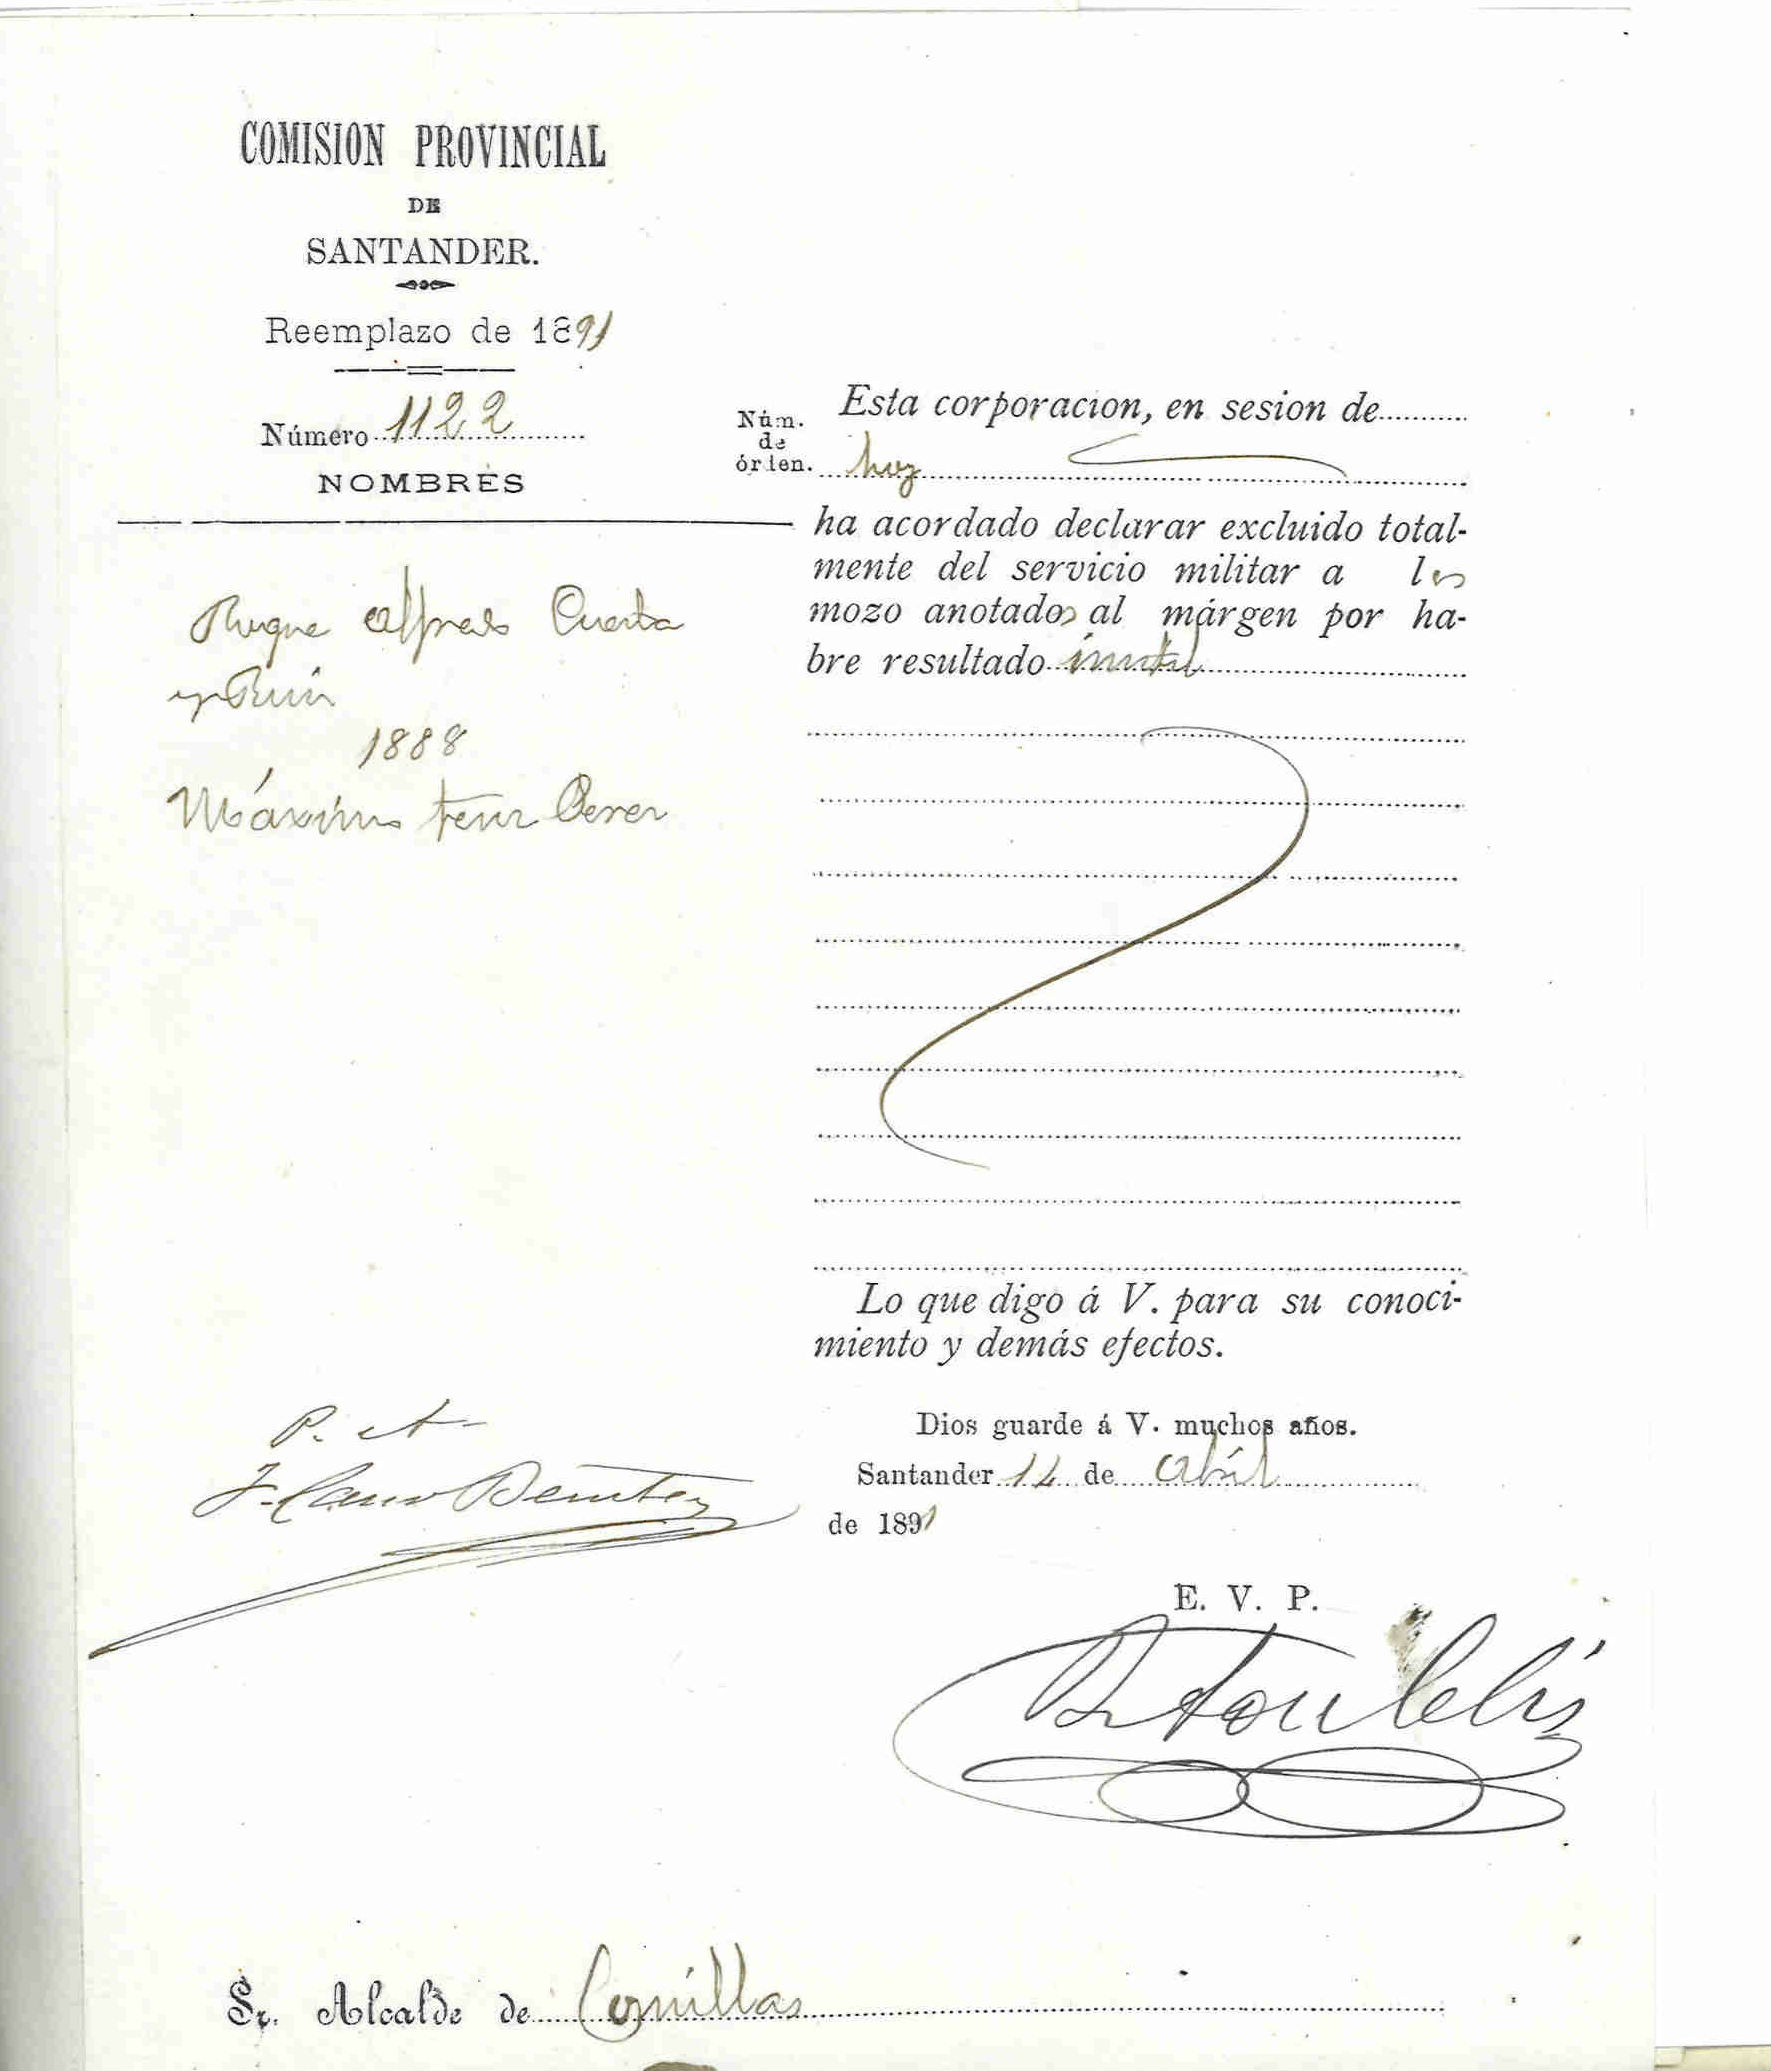 COMISION PROVINCIAL
DE
SANTANDER.
Reemplazo de 1891
Número 1122
NOMBRES
Núm.
de
órden.
Roque Alfredo Cuesta
y Ruiz
1888
Máximo Perez
Esta corporacion, en sesion de
hoy
ha acordado declarar excluido total-
mente del servicio militar a los
mozo anotados al márgen por ha-
bre resultado inutil
Lo que digo á V. para su conoci-
miento y demás efectos.
Dios guarde á V. muchos años.
Santander 14 de Abril
de 1891
P. A.
J. Cano Benitez
E. V. P.
Sr. Alcalde de Comillas